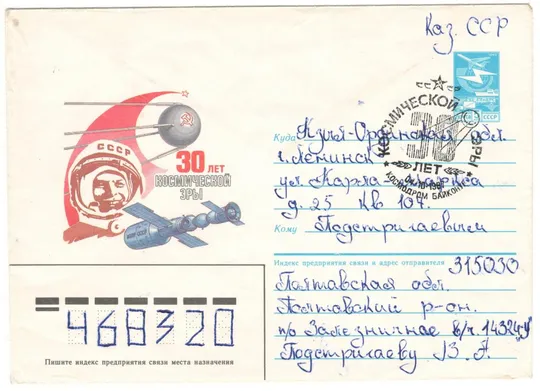 Каз. ССР
СССР
30 ЛЕТ
КОСМИЧЕСКОЙ
ЭРЫ
КОСМИЧЕСКОЙ ЭРЫ
30
ЛЕТ
04.10.1987
КОСМОДРОМ БАЙКОНУР
Куда Кзыл-Ординская обл.
г. Ленинск
ул. Карла Маркса
д. 25 кв 107.
Кому Подстригаевым
Индекс предприятия связи и адрес отправителя
315030
Полтавская обл.
Полтавский р-он.
п/о Зализничнае в/ч. 14324"У"
Подстригаеву В. А.
468320
Пишите индекс предприятия связи места назначения